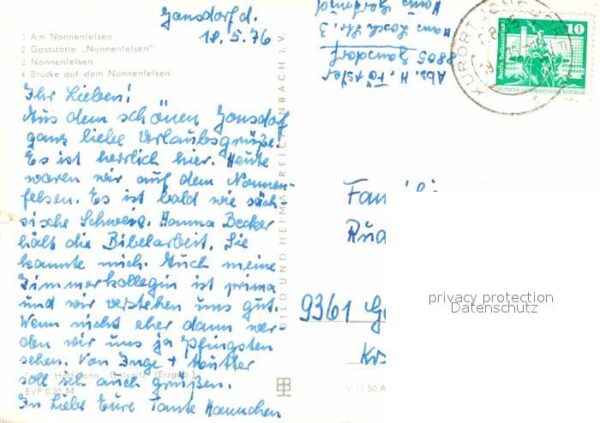 Jonsdorf d.
12.5.76
1 Am Nonnenfelsen
2 Gaststätte „Nonnenfelsen"
3 Nonnenfelsen
4 Brücke auf dem Nonnenfelsen
Ihr Lieben!
Aus dem schönen Jonsdorf
ganz liebe Urlaubsgrüße.
Es ist herrlich hier. Heute
waren wir auf dem Nonnen-
felsen. Es ist bald wie säch-
sische Schweiz. Hanna Becker
hält die Bibelarbeit. Sie
kannte mich. Auch meine
Zimmerkollegin ist prima
und wir verstehen uns gut.
Wenn nicht eher dann wer
den wir uns ja Pfingsten
sehen. Von Inge + Mutter
soll ich auch grüßen.
In Liebe Eure Tante Hannchen
EVP 0,25 M
BILD UND HEIMAT REICHENBACH I. V.
V 11 50 A
Abs. H. Förster
8805 Jonsdorf
KURORT JONSDORF
10
DEUTSCHE DEMOKRATISCHE REPUBLIK
Fam
9361
privacy protection
Datenschutz